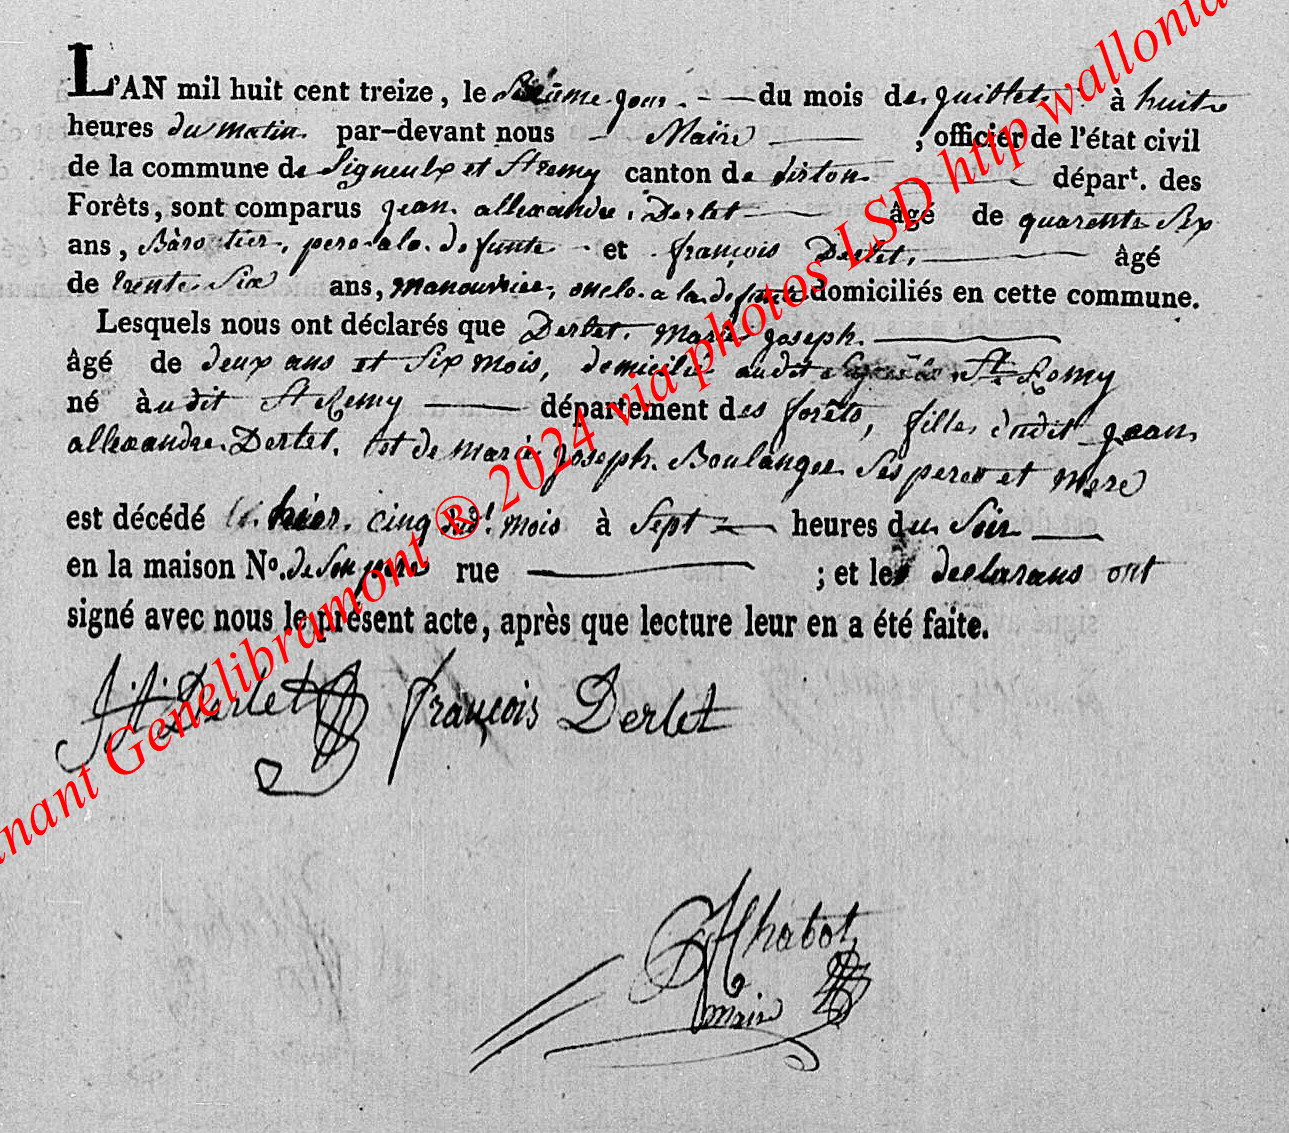 L'AN mil huit cent treize, le Sixième jour du mois de juillet à huit
heures du matin par-devant nous Maire, officier de l'état civil
de la commune de Signeulx et St remy canton de virton départ. des
Forêts, sont comparus jean allexandre Derlet âgé de quarente Six
ans, pere a la defunte et françois Derlet, âgé
de trente Six ans, manouvrier, oncle a la defunte domiciliés en cette commune.
Lesquels nous ont déclarés que Derlet Marie joseph
âgé de deux ans et Six mois, domicilié audit St Remy
né audit St Remy département des forêts, fille dudit jean
allexandre Derlet, et de Marie joseph Boulanger Ses peres et mere
est décédé hier cinq dud. mois à Sept heures du Soir
en la maison No. de Son pere rue ; et les declarans ont
signé avec nous le présent acte, après que lecture leur en a été faite.
Derlet françois Derlet
Chabot
maire
nant Genelibramont ® 2024 via photos LSD http wallonia